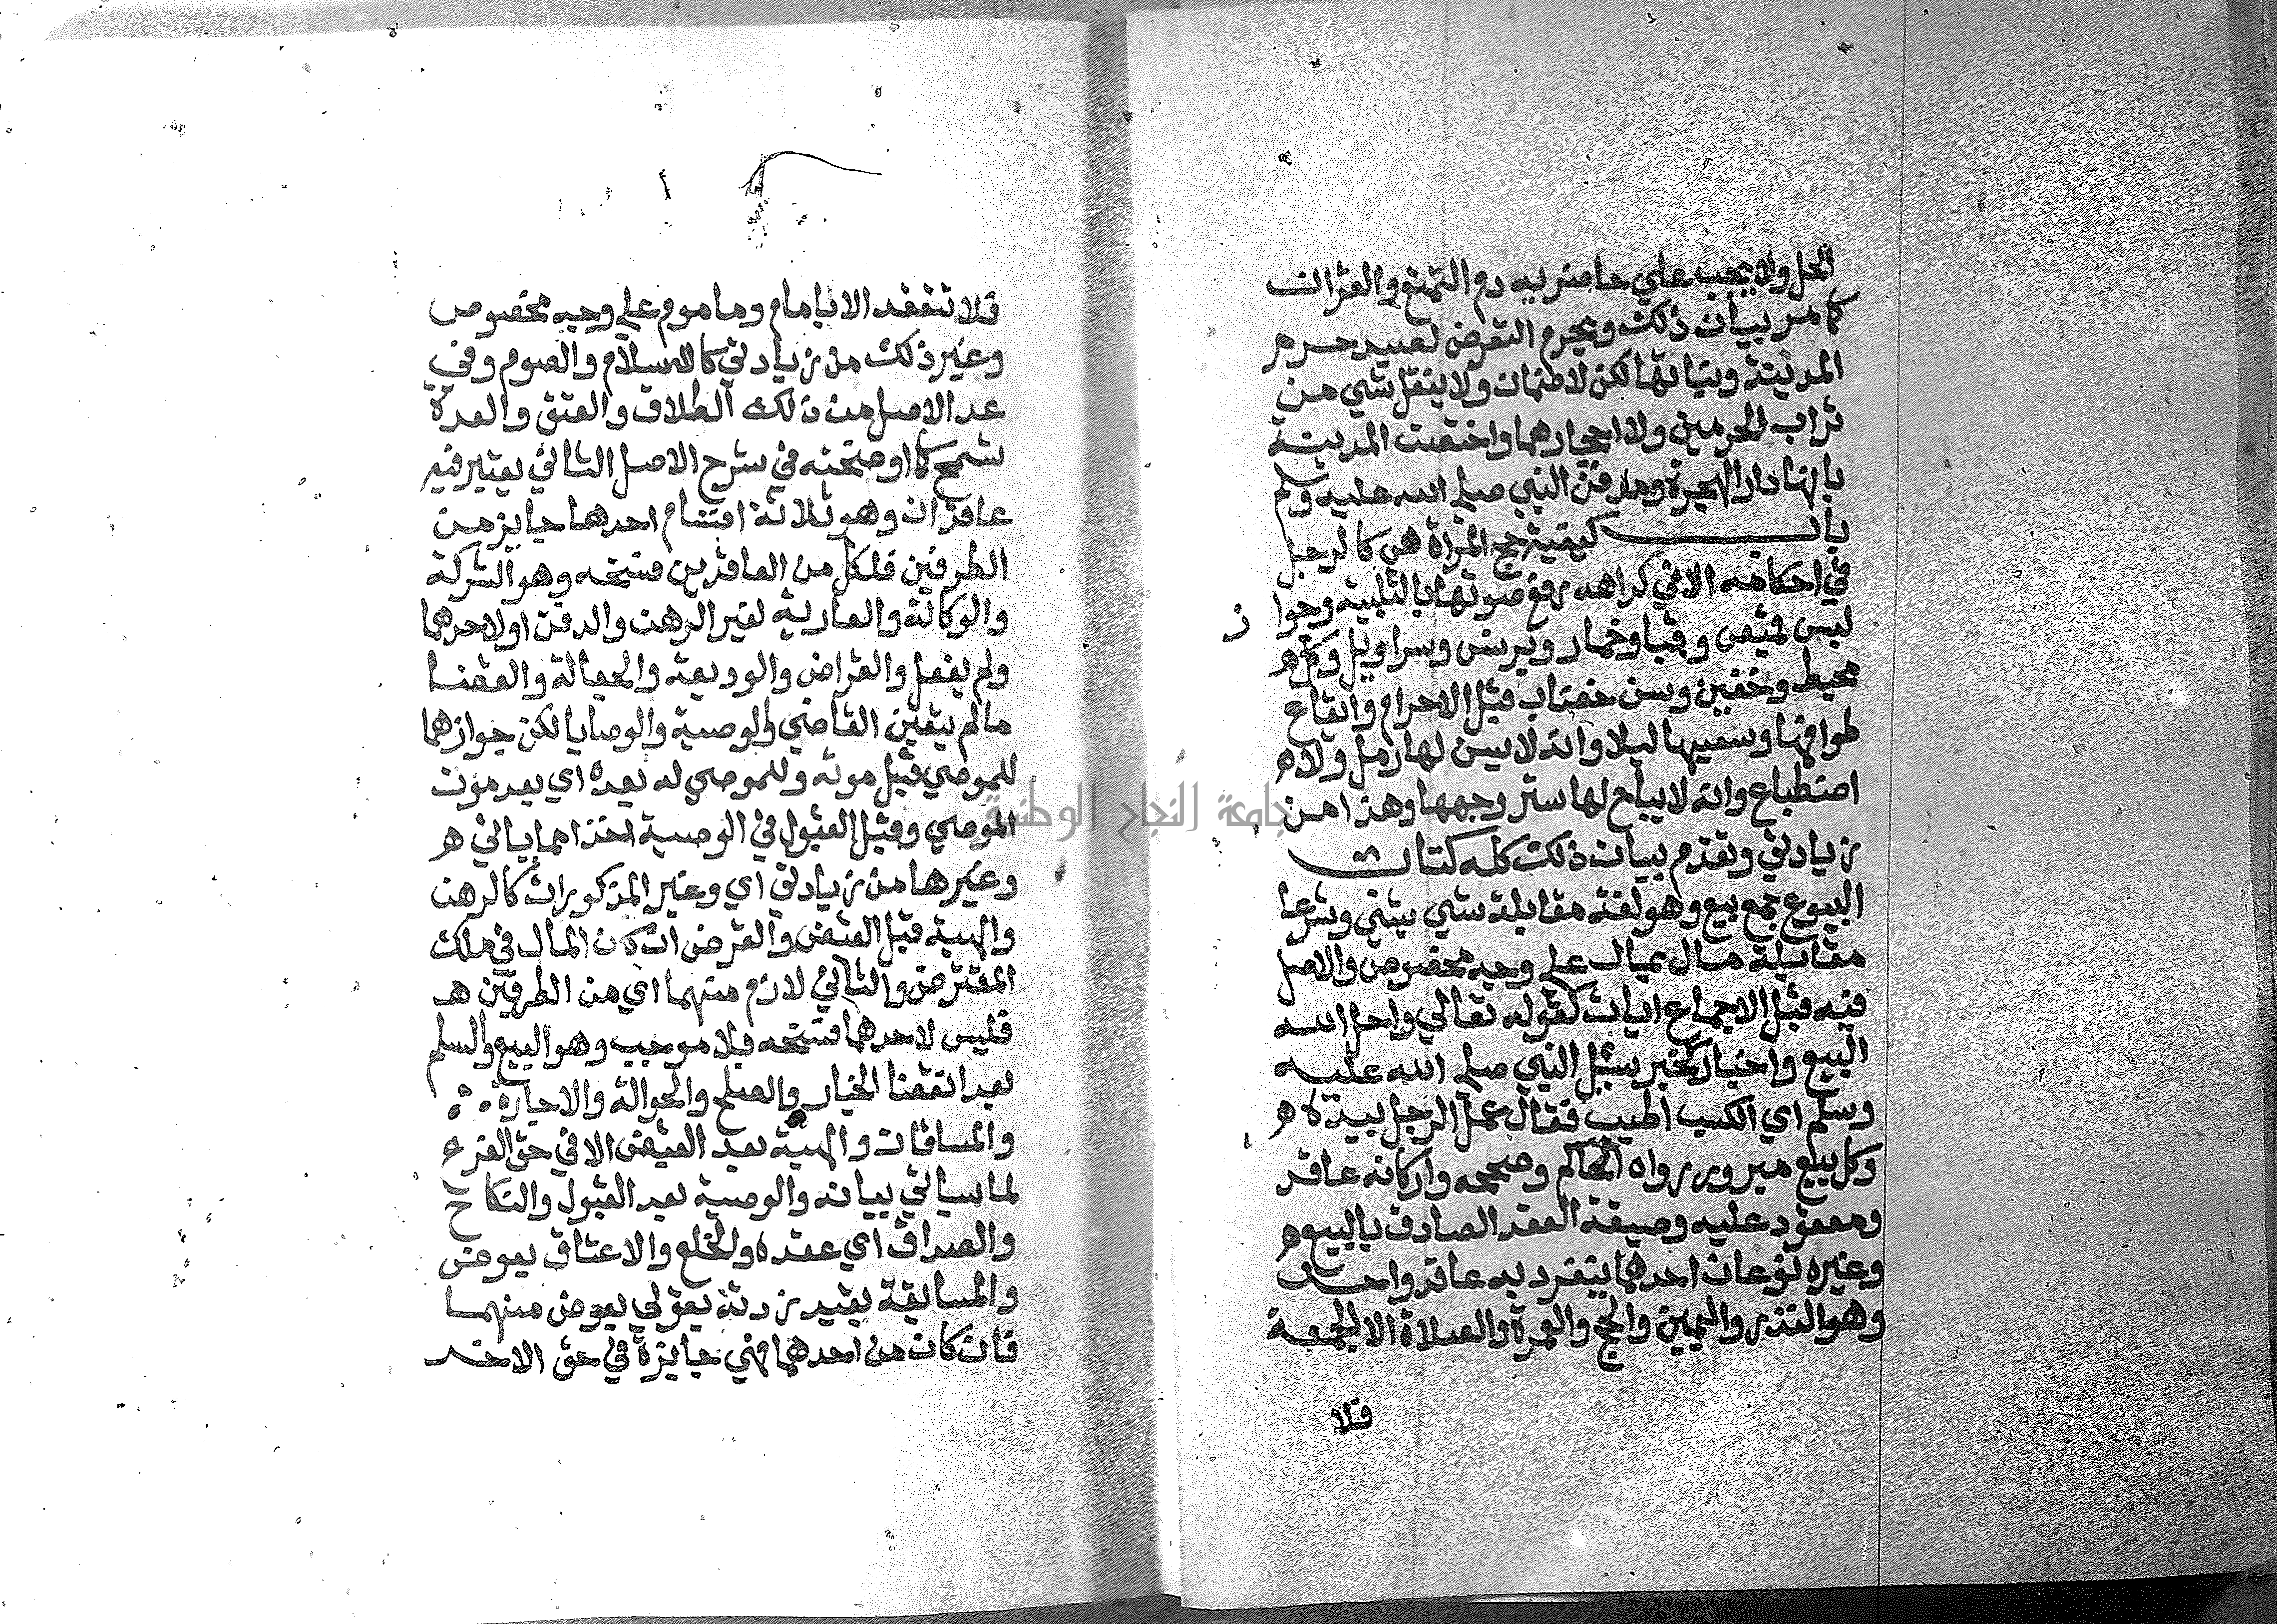 الحل ولا يجب علي حاضريه دم التمتع والقران
كما مر بيان ذلك ويحرم التعرض لصيد حرم
المدينة ونباتها لكن لا ضمان ولا ينقل شي من
تراب الحرمين ولا احجارهما واختصت المدينة
بانها دار الهجرة ومدفن النبي صلي الله عليه وسلم
باب كيفية حج المراة هي كالرجل
في احكامه الا في كراهه رفع صوتها بالتلبية وجواز
لبس قميص وقبا وخمار وبرنس وسراويل وكل
محيط وخفين وسن خضاب قبل الاحرام وايقاع
طوافها وسعيها ليلا وانه لا يسن لها رمل ولا
اضطباع وانه لا يباح لها ستر وجهها وهذا من
زيادتي وتقدم بيان ذلك كله كتاب
البيوع جمع بيع وهو لغة مقابلة شي بشي وشرعا
مقابلة مال بمال علي وجه مخصوص والاصل
فيه قبل الاجماع ايات كقوله تعالي واحل الله
البيع واخبار كخبر سئل النبي صلي الله عليه
وسلم اي الكسب اطيب فقال عمل الرجل بيده
وكل بيع مبرور رواه الحاكم وصححه واركانه عاقد
ومعقود عليه وصيغة العقد الصادق بالبيع
وغيره نوعان احدهما ينفرد به عاقد واحد
وهو النذر واليمين والحج والعمرة والصلاة الا الجمعة
فلا
فلا تنعقد الا بامام وماموم علي وجه مخصوص
وغير ذلك من زيادتي كالاسلام والصوم وفي
عد الاصل من ذلك الطلاق والعتق والعدة
تسمح كما اوضحته في شرح الاصل الثاني يعتبر فيه
عاقدان وهو ثلاثة اقسام احدها جايز من
الطرفين فلكل من العاقدين فسخه وهو الشركة
والوكالة والعارية لغير الرهن والدفن او لاحدهما
ولم يفعل والقراض والوديعة والجعالة والقضا
مالم يتعين القاضي والوصية والوصايا لكن جوازهما
للموصي قبل موته وللموصي له بعده اي بعد موت
الموصي وقبل القبول في الوصية اخذا مما ياتي
وغيرها من زيادتي اي وغير المذكورات كالرهن
والهبة قبل القبض والقرض ان كان المال في ملك
المقترض والثاني لازم منهما اي من الطرفين
فليس لاحدهما فسخه بلا موجب وهو البيع والسلم
بعد انقضا الخيار والصلح والحوالة والاجارة
والمساقات والهبة بعد القبض الا في حق الفرع
لما سياتي بيانه والوصية بعد القبول والنكاح
والصداق اي عقده والخلع والاعتاق بعوض
والمسابقة بقيد زدته بقولي بعوض منهما
فان كان من احدهما فهي جايزة في حق الاخر
جامعة النجاح الوطنية